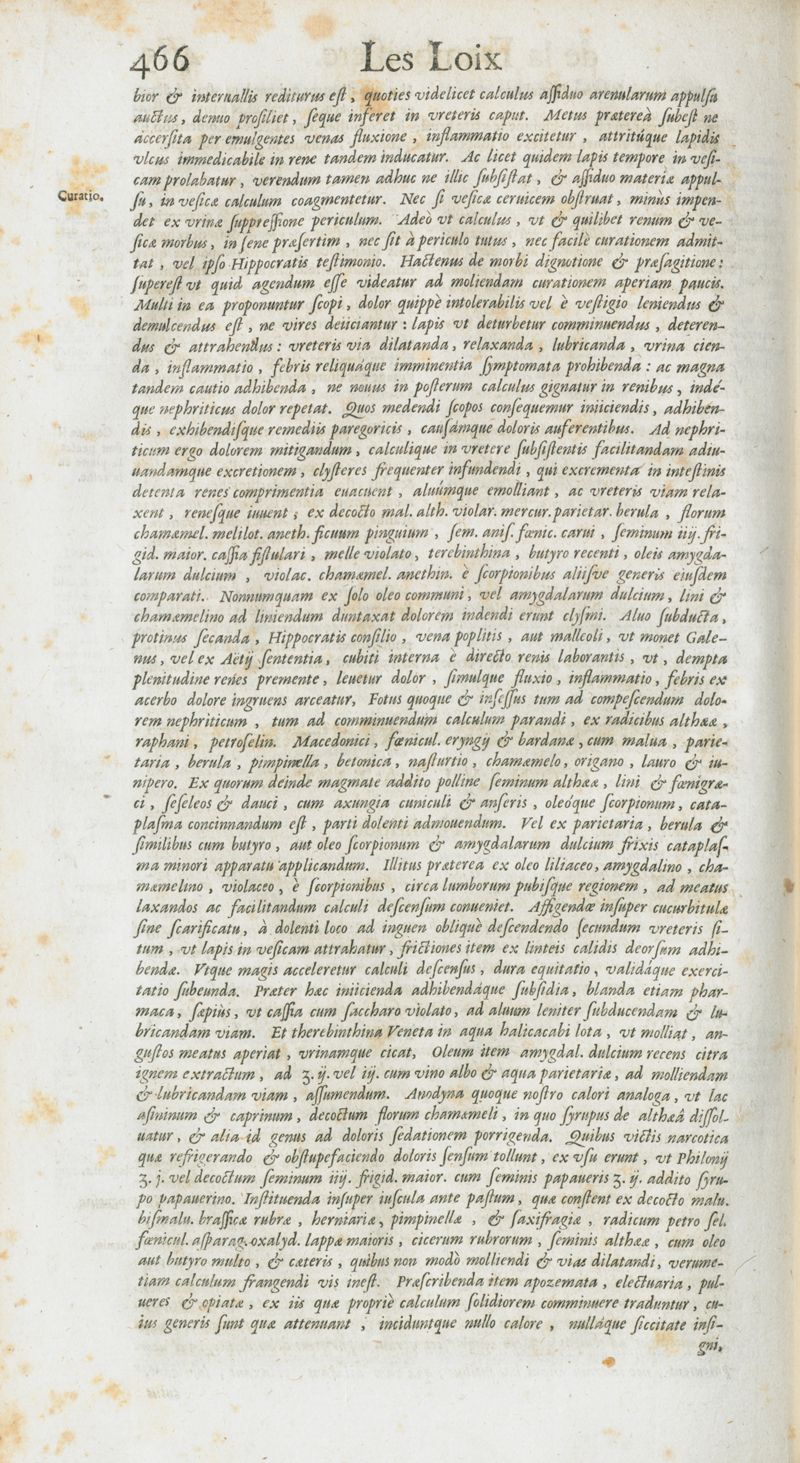 466 Les Loix
bior & interuallis rediturus eſt, quoties videlicet calculus aſſiduo arenularum appulſu
auctus, denuo proſiliet, ſeque inferet in vreteris caput. Metus præterea ſubeſt ne
accerſita per emulgentes venas fluxione, inflammatio excitetur, attritúque lapidis
vlcus immedicabile in rene tandem inducatur. Ac licet quidem lapis tempore in veſi-
cam prolabatur, verendum tamen adhuc ne illic ſubſiſtat, & aſſiduo materiæ appul-
Curatio.
ſu, in veſica calculum coagmentetur. Nec ſi veſicæ ceruicem obſtruat, minus impen-
det ex vrinæ ſuppreſſione periculum. Adeò vt calculus, vt & quilibet renum & ve-
ſicæ morbus, in ſene præſertim, nec ſit à periculo tutus, nec facilè curationem admit-
tat, vel ipſo Hippocratis teſtimonio. Hactenus de morbi dignotione & præſagitione:
ſupereſt vt quid agendum eſſe videatur ad moliendam curationem aperiam paucis.
Multi in ea proponuntur ſcopi, dolor quippè intolerabilis vel è veſtigio leniendus &
demulcendus eſt, ne vires deiiciantur: lapis vt deturbetur comminuendus, deteren-
dus & attrahendus: vreteris via dilatanda, relaxanda, lubricanda, vrina cien-
da, inflammatio, febris reliquáque imminentia ſymptomata prohibenda: ac magna
tandem cautio adhibenda, ne nouus in poſterum calculus gignatur in renibus, indé-
que nephriticus dolor repetat. Quos medendi ſcopos conſequemur iniiciendis, adhiben-
dis, exhibendiſque remediis paregoricis, cauſámque doloris auferentibus. Ad nephri-
ticum ergo dolorem mitigandum, calculique in vretere ſubſiſtentis facilitandam adiu-
uandamque excretionem, clyſteres frequenter infundendi, qui excrementa in inteſtinis
detenta renes comprimentia euacuent, aluúmque emolliant, ac vreteris viam rela-
xent, reneſque iuuent; ex decocto mal. alth. violar. mercur. parietar. berula, florum
chamæmel. melilot. aneth. ficuum pinguium, ſem. aniſ. fœnic. carui, ſeminum iiij. fri-
gid. maior. caſſia fiſtulari, melle violato, terebinthina, butyro recenti, oleis amygda-
larum dulcium, violac. chamæmel. anethin. è ſcorpionibus aliiſve generis eiuſdem
comparati. Nonnumquam ex ſolo oleo communi, vel amygdalarum dulcium, lini &
chamæmelino ad liniendum duntaxat dolorem indendi erunt clyſmi. Aluo ſubducta,
protinus ſecanda, Hippocratis conſilio, vena poplitis, aut malleoli, vt monet Gale-
nus, vel ex Aëtij ſententia, cubiti interna è directo renis laborantis, vt, dempta
plenitudine renes premente, leuetur dolor, ſimulque fluxio, inflammatio, febris ex
acerbo dolore ingruens arceatur, Fotus quoque & inſeſſus tum ad compeſcendum dolo-
rem nephriticum, tum ad comminuendum calculum parandi, ex radicibus althææ,
raphani, petroſelin. Macedonici, fœnicul. eryngij & bardanæ, cum malua, parie-
taria, berula, pimpinella, betonica, naſturtio, chamæmelo, origano, lauro & iu-
nipero. Ex quorum deinde magmate addito polline ſeminum althææ, lini & fœnigræ-
ci, ſeſeleos & dauci, cum axungia cuniculi & anſeris, oleóque ſcorpionum, cata-
plaſma concinnandum eſt, parti dolenti admouendum. Vel ex parietaria, berula &
ſimilibus cum butyro, aut oleo ſcorpionum & amygdalarum dulcium frixis cataplaſ-
ma minori apparatu applicandum. Illitus præterea ex oleo liliaceo, amygdalino, cha-
mæmelino, violaceo, è ſcorpionibus, circa lumborum pubiſque regionem, ad meatus
laxandos ac facilitandum calculi deſcenſum conueniet. Affigendæ inſuper cucurbitulæ
ſine ſcarificatu, à dolenti loco ad inguen obliquè deſcendendo ſecundum vreteris ſi-
tum, vt lapis in veſicam attrahatur, frictiones item ex linteis calidis deorſum adhi-
bendæ. Vtque magis acceleretur calculi deſcenſus, dura equitatio, validáque exerci-
tatio ſubeunda. Præter hæc iniicienda adhibendáque ſubſidia, blanda etiam phar-
maca, ſæpiùs, vt caſſia cum ſaccharo violato, ad aluum leniter ſubducendam & lu-
bricandam viam. Et therebinthina Veneta in aqua halicacabi lota, vt molliat, an-
guſtos meatus aperiat, vrinamque cicat, Oleum item amygdal. dulcium recens citra
ignem extractum, ad ʒ. ij. vel iij. cum vino albo & aqua parietariæ, ad molliendam
& lubricandam viam, aſſumendum. Anodyna quoque noſtro calori analoga, vt lac
aſininum & caprinum, decoctum florum chamæmeli, in quo ſyrupus de althæâ diſſol-
uatur, & alia id genus ad doloris ſedationem porrigenda. Quibus victis narcotica
quæ refrigerando & obſtupefaciendo doloris ſenſum tollunt, ex vſu erunt, vt Philonij
ʒ. j. vel decoctum ſeminum iiij. frigid. maior. cum ſeminis papaueris ʒ. ij. addito ſyru-
po papauerino. Inſtituenda inſuper iuſcula ante paſtum, quæ conſtent ex decocto malu.
biſmalu. braſſicæ rubræ, herniariæ, pimpinellæ, & ſaxifragiæ, radicum petro ſel.
fœnicul. aſparag. oxalyd. lappæ maioris, cicerum rubrorum, ſeminis althææ, cum oleo
aut butyro multo, & cæteris, quibus non modò molliendi & vias dilatandi, verume-
tiam calculum frangendi vis ineſt. Præſcribenda item apozemata, electuaria, pul-
ueres & opiatæ, ex iis quæ propriè calculum ſolidiorem comminuere traduntur, cu-
ius generis ſunt quæ attenuant, inciduntque nullo calore, nulláque ſiccitate inſi-
gni,